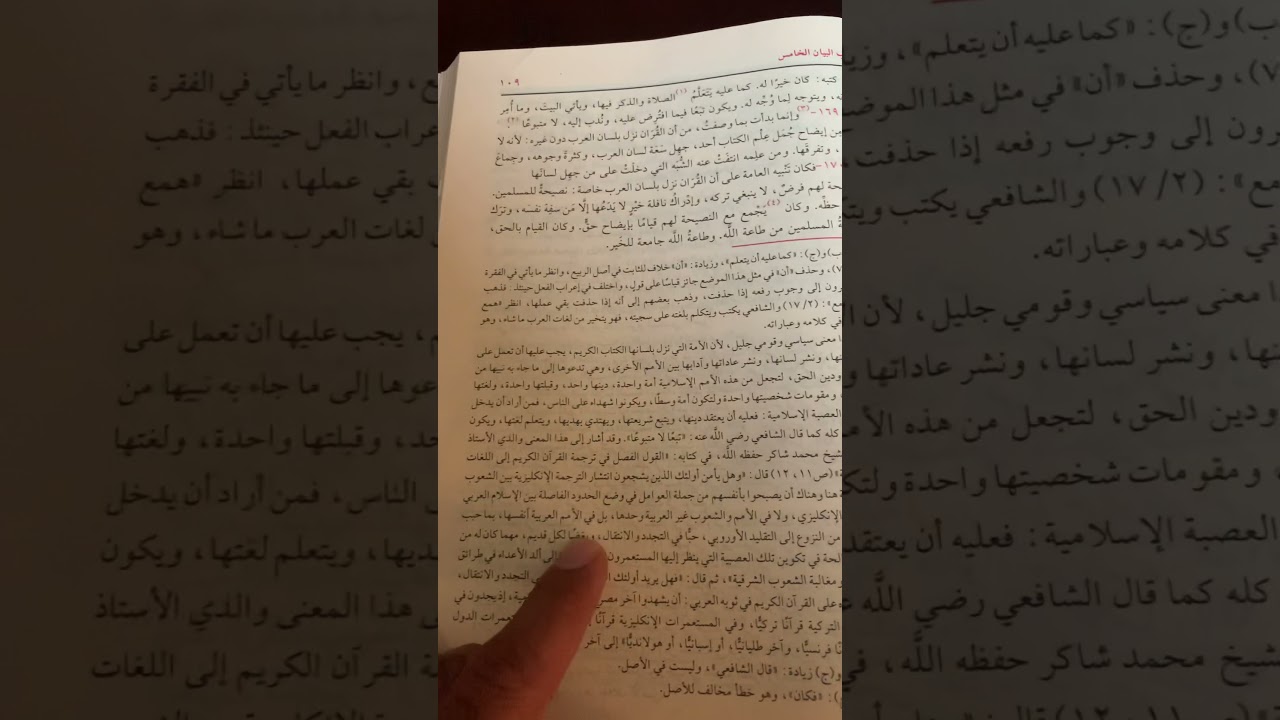 ب البيان الخامس
١٠٩
كتبه: كان خيرًا له. كما عليه يَتَعَلَّمُ (١) الصلاة والذكر فيها، ويأتي البيتَ، وما أُمِر
، ويتوجه لِما وُجِّه له. ويكون تبَعًا فيما افتُرِض عليه، ونُدب إليه، لا متبوعًا (٢).
١٦٩- (٣) وإنما بدأت بما وصفتُ، من أن القُرَان نزل بلسان العرب دون غيره: لأنه لا
من إيضاح جُمَل عِلْم الكتاب أحد، جهِل سَعَة لسان العرب، وكثرةَ وجوهه، وجِماعَ
، وتفرقَها. ومن علِمه انتفَتْ عنه الشُّبَه التي دخلَتْ على من جهِل لسانَها
١٧- فكان تَنْبيه العامة على أن القُرَان نزل بلسان العرب خاصة: نصيحةً للمسلمين.
حة لهم فرضٌ، لا ينبغي تركه، وإدراكُ نافلة خيْرٍ لا يَدَعُها إلَّا مَن سفِهَ نفسَه، وترَك
حظِّه. وكان (٤) يَجْمع مع النصيحة لهم قيامًا بإيضاح حقٍّ. وكان القيام بالحق،
ةُ المسلمين من طاعة اللَّه. وطاعةُ اللَّه جامعة للخَير.
ب) و(ج): «كما عليه أن يتعلم»، وزيادة: «أن» خلاف للثابت في أصل الربيع، وانظر ما يأتي في الفقرة
٧)، وحذف «أن» في مثل هذا الموضع جائز قياسًا على قول، واختلف في إعراب الفعل حينئذ: فذهب
رون إلى وجوب رفعه إذا حذفت، وذهب بعضهم إلى أنه إذا حذفت بقي عملها، انظر «همع
مع»: (٢/ ١٧) والشافعي يكتب ويتكلم بلغته على سجيته، فهو يتخير من لغات العرب ما شاء، وهو
في كلامه وعباراته.
ا معنى سياسي وقومي جليل، لأن الأمة التي نزل بلسانها الكتاب الكريم، يجب عليها أن تعمل على
نها، ونشر لسانها، ونشر عاداتها وآدابها بين الأمم الأخرى، وهي تدعوها إلى ما جاء به نبيها من
ودين الحق، لتجعل من هذه الأمم الإسلامية أمة واحدة، دينها واحد، وقبلتها واحدة، ولغتها
، ومقومات شخصيتها واحدة ولتكون أمة وسطًا، ويكونوا شهداء على الناس، فمن أراد أن يدخل
العصبة الإسلامية: فعليه أن يعتقد دينها، ويتبع شريعتها، ويهتدي بهديها، ويتعلم لغتها، ويكون
كله كما قال الشافعي رضي اللَّه عنه: «تبعًا لا متبوعًا». وقد أشار إلى هذا المعنى والدي الأستاذ
شيخ محمد شاكر حفظه اللَّه، في كتابه: «القول الفصل في ترجمة القرآن الكريم إلى اللغات
ة» (ص ١١، ١٢) قال: «وهل يأمن أولئك الذين يشجعون انتشار الترجمة الإنكليزية بين الشعوب
هنا وهناك أن يصبحوا بأنفسهم من جملة العوامل في وضع الحدود الفاصلة بين الإسلام العربي
الإنكليزي، ولا في الأمم والشعوب غير العربية وحدها، بل في الأمم العربية أنفسها، بما حبب
من النزوع إلى التقليد الأوروبي، حبًّا في التجدد والانتقال، لكل قديم، مهما كان له من
لحة في تكوين تلك العصبية التي ينظر إليها المستعمرون إلى ألد الأعداء في طرائق
ومغالبة الشعوب الشرقية»، ثم قال: «فهل يريد أولئك التجدد والانتقال،
على القرآن الكريم في ثوبه العربي: أن يشهدوا آخر إذ يجدون في
التركية قرآنًا تركيًّا، وفي المستعمرات الإنكليزية قرآنًا الدول
فرنسيًّا، وآخر طليانيًّا، أو إسبانيًّا، أو هولانديًّا» إلى آخر
و(ج) زيادة: «قال الشافعي»، وليست في الأصل.
): «فكان»، وهو خطأ مخالف للأصل.